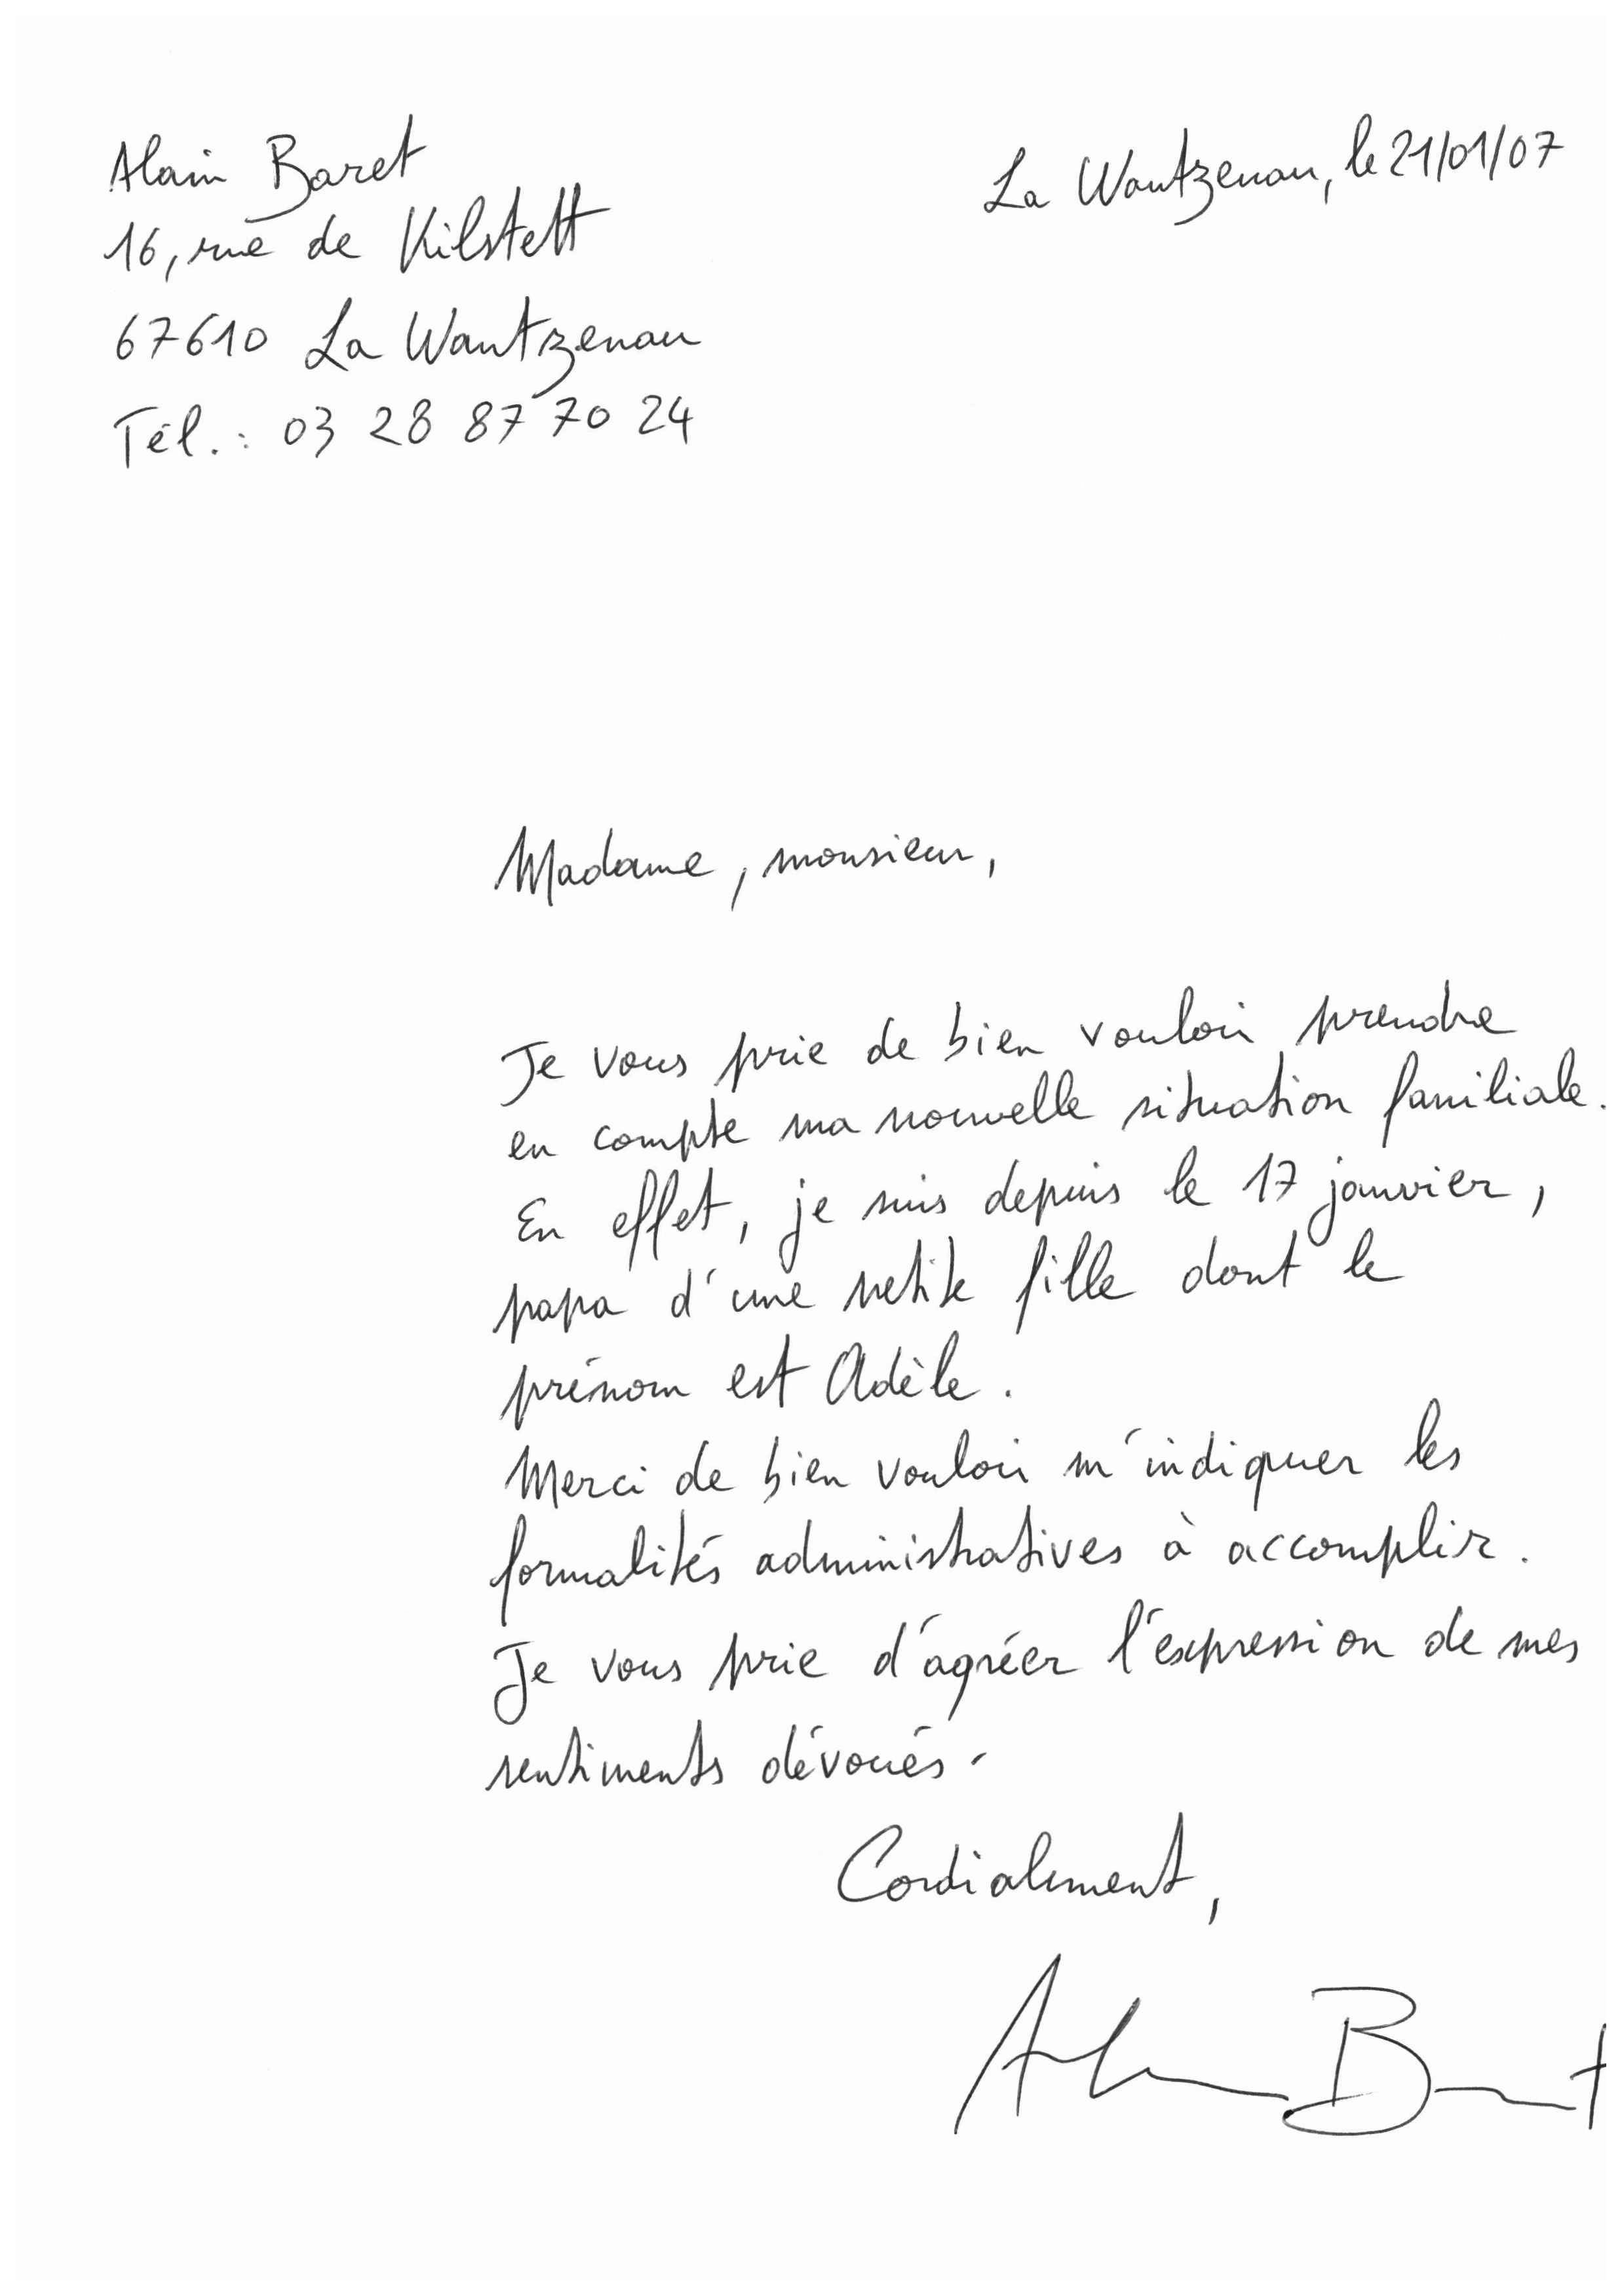 Alain Baret
La Wantzenau, le 21/01/07
16, rue de Kilstett
67610 La Wantzenau
Tél. : 03 28 87 70 24
Madame, monsieur,
Je vous prie de bien vouloir prendre
en compte ma nouvelle situation familiale.
En effet, je suis depuis le 17 janvier,
papa d'une petite fille dont le
prénom est Adèle.
Merci de bien vouloir m'indiquer les
formalités administratives à accomplir.
Je vous prie d'agréer l'expression de mes
sentiments dévoués.
Cordialement,
Alain Baret